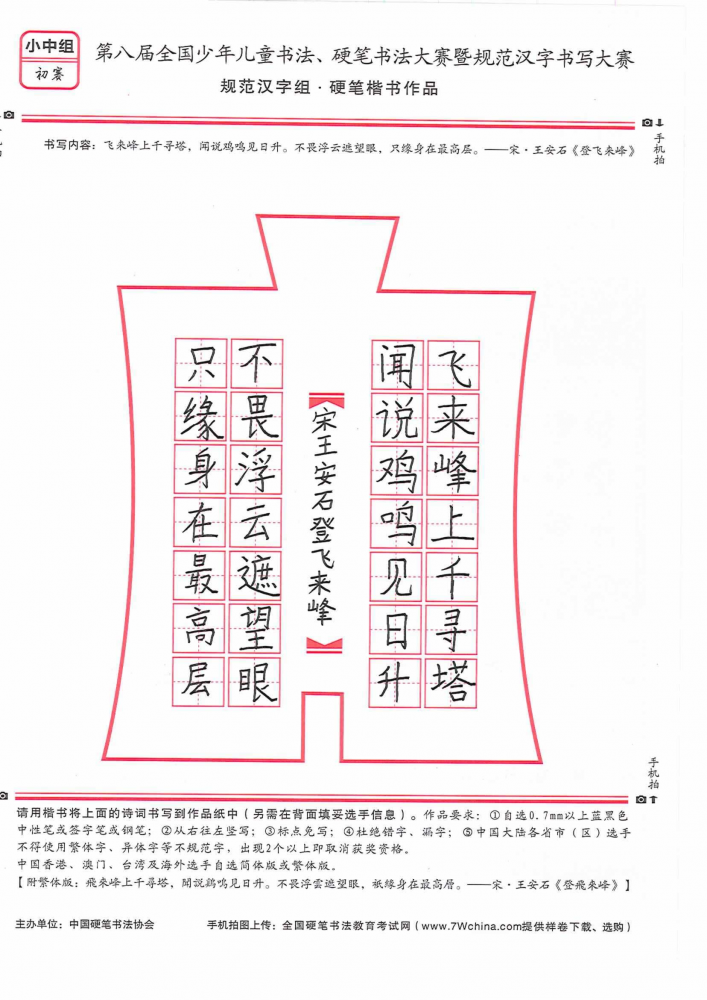 小中组
初赛
第八届全国少年儿童书法、硬笔书法大赛暨规范汉字书写大赛
规范汉字组·硬笔楷书作品
手机拍
书写内容：飞来峰上千寻塔，闻说鸡鸣见日升。不畏浮云遮望眼，只缘身在最高层。——宋·王安石《登飞来峰》
飞来峰上千寻塔
闻说鸡鸣见日升
宋王安石登飞来峰
不畏浮云遮望眼
只缘身在最高层
手机拍
请用楷书将上面的诗词书写到作品纸中（另需在背面填妥选手信息）。作品要求：①自选0.7mm以上蓝黑色
中性笔或签字笔或钢笔；②从右往左竖写；③标点免写；④杜绝错字、漏字；⑤中国大陆各省市（区）选手
不得使用繁体字、异体字等不规范字，出现2个以上即取消获奖资格。
中国香港、澳门、台湾及海外选手自选简体版或繁体版。
【附繁体版：飛來峰上千尋塔，聞說鷄鳴見日升。不畏浮雲遮望眼，祇緣身在最高層。——宋·王安石《登飛來峰》】
主办单位：中国硬笔书法协会
手机拍图上传：全国硬笔书法教育考试网（www.7Wchina.com提供样卷下载、选购）